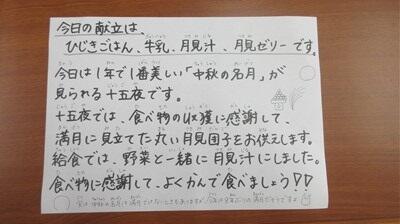 今日の献立は、
ひじきごはん、牛乳、月見汁、月見ゼリーです。
今日は1年で1番美しい「中秋の名月」が
見られる十五夜です。
十五夜では、食べ物の収穫に感謝して、
満月に見立てた丸い月見団子をお供えします。
給食では、野菜と一緒に月見汁にしました。
食べ物に感謝して、よくかんで食べましょう!!